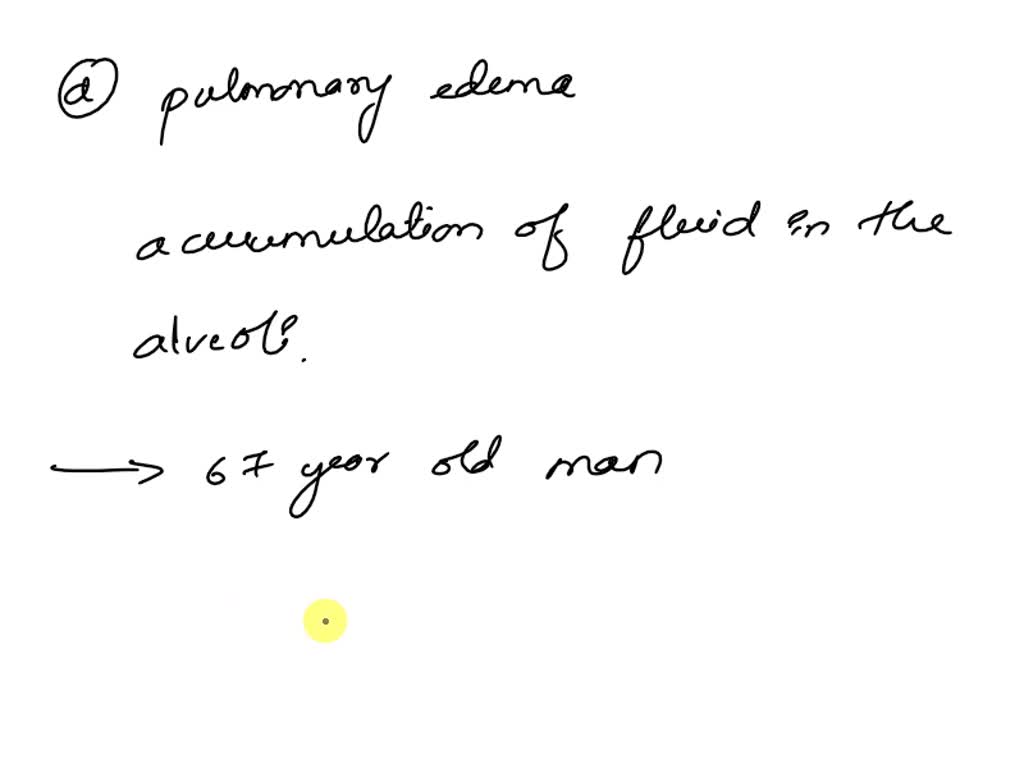 ⓓ pulmonary edema
accumulation of fluid in the
alveoli.
→ 67 year old man